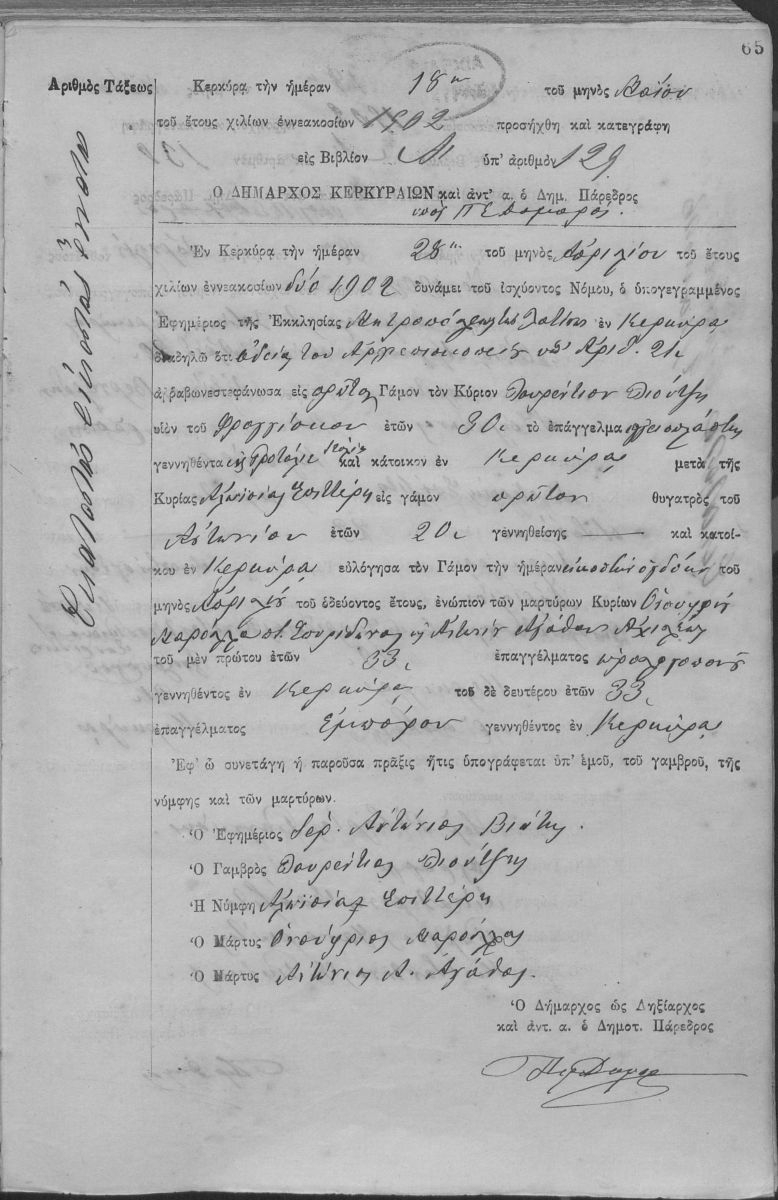 65
Ἀριθμὸς Τάξεως
Ἑκατοστὸς εἰκοστὸς ἔνατος
Κερκύρᾳ τὴν ἡμέραν 18ην τοῦ μηνὸς Μαΐου
τοῦ ἔτους χιλίων ἐννεακοσίων 1902 προσήχθη καὶ κατεγράφη
εἰς Βιβλίον Α! ὑπ' ἀριθμὸν 129
Ὁ ΔΗΜΑΡΧΟΣ ΚΕΡΚΥΡΑΙΩΝ καὶ ἀντ' α. ὁ Δημ. Πάρεδρος
Ἐν Κερκύρᾳ τὴν ἡμέραν 28ην τοῦ μηνὸς Ἀπριλίου τοῦ ἔτους
χιλίων ἐννεακοσίων δύο 1902 δυνάμει τοῦ ἰσχύοντος Νόμου, ὁ ὑπογεγραμμένος
Ἐφημέριος τῆς Ἐκκλησίας Μητροπόλεως Λατίνων ἐν Κερκύρᾳ
διαδηλῶ ὅτι ἀδείᾳ του Ἀρχιεπισκόπου ὑπ' Ἀριθ. 21
ἀρραβωνεστεφάνωσα εἰς πρῶτον Γάμον τὸν Κύριον Λαυρέντιον
υἱὸν τοῦ Φραγγίσκου ἐτῶν 30 τὸ ἐπάγγελμα
γεννηθέντα καὶ κάτοικον ἐν Κερκύρᾳ μετὰ τῆς
Κυρίας Ἀλωϊσίας εἰς γάμον πρῶτον θυγατρὸς τοῦ
Ἀντωνίου ἐτῶν 20 γεννηθείσης — καὶ κατοί-
κου ἐν Κερκύρᾳ εὐλόγησα τὸν Γάμον τὴν ἡμέραν εἰκοστὴν ὀγδόην τοῦ
μηνὸς Ἀπριλίου τοῦ ὁδεύοντος ἔτους, ἐνώπιον τῶν μαρτύρων Κυρίων Ὀνουφρίου
Μαρόλλα Σπυρίδωνος Ἀντωνίου Ἀγάθου Ἀχιλλέως
τοῦ μὲν πρώτου ἐτῶν 33 ἐπαγγέλματος ὡρολογοποιοῦ
γεννηθέντος ἐν Κερκύρᾳ τοῦ δὲ δευτέρου ἐτῶν 33
ἐπαγγέλματος Ἐμπόρου γεννηθέντος ἐν Κερκύρᾳ
Ἐφ' ᾧ συνετάγη ἡ παροῦσα πρᾶξις ἥτις ὑπογράφεται ὑπ' ἐμοῦ, τοῦ γαμβροῦ, τῆς
νύμφης καὶ τῶν μαρτύρων.
Ὁ Ἐφημέριος Ἱερ. Ἀντώνιος
Ὁ Γαμβρὸς Λαυρέντιος
Ἡ Νύμφη Ἀλωϊσία
Ὁ Μάρτυς Ὀνούφριος Μαρόλλας
Ὁ Μάρτυς Ἀντώνιος Α. Ἀγάθος.
Ὁ Δήμαρχος ὡς Ληξίαρχος
καὶ ἀντ. α. ὁ Δημοτ. Πάρεδρος